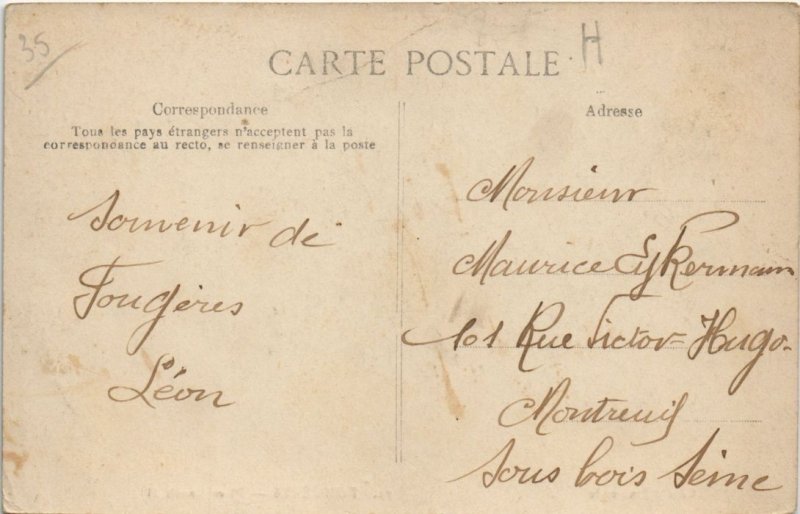 35
H
CARTE POSTALE
Correspondance
Tous les pays étrangers n'acceptent pas la
correspondance au recto, se renseigner à la poste
Adresse
Souvenir de
Fougères
Léon
Monsieur
Maurice EyKermann
101 Rue Victor=Hugo.
Montreuil
Sous bois Seine